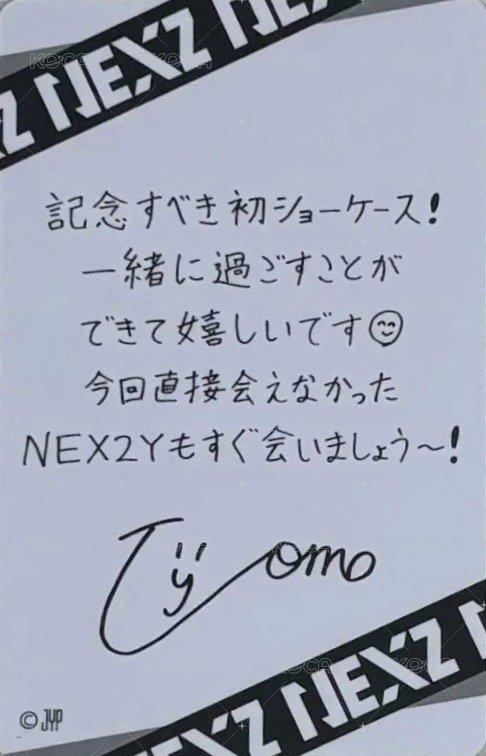 NEXZ NEXZ
記念すべき初ショーケース!
一緒に過ごすことが
できて嬉しいです
今回直接会えなかった
NEX2Yもすぐ会いましょう〜!
Tomo
NEXZ NEXZ NEXZ
© JYP